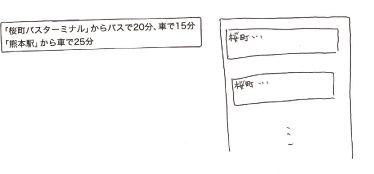 「桜町バスターミナル」からバスで20分、車で15分
「熊本駅」から車で25分
桜町…
桜町…